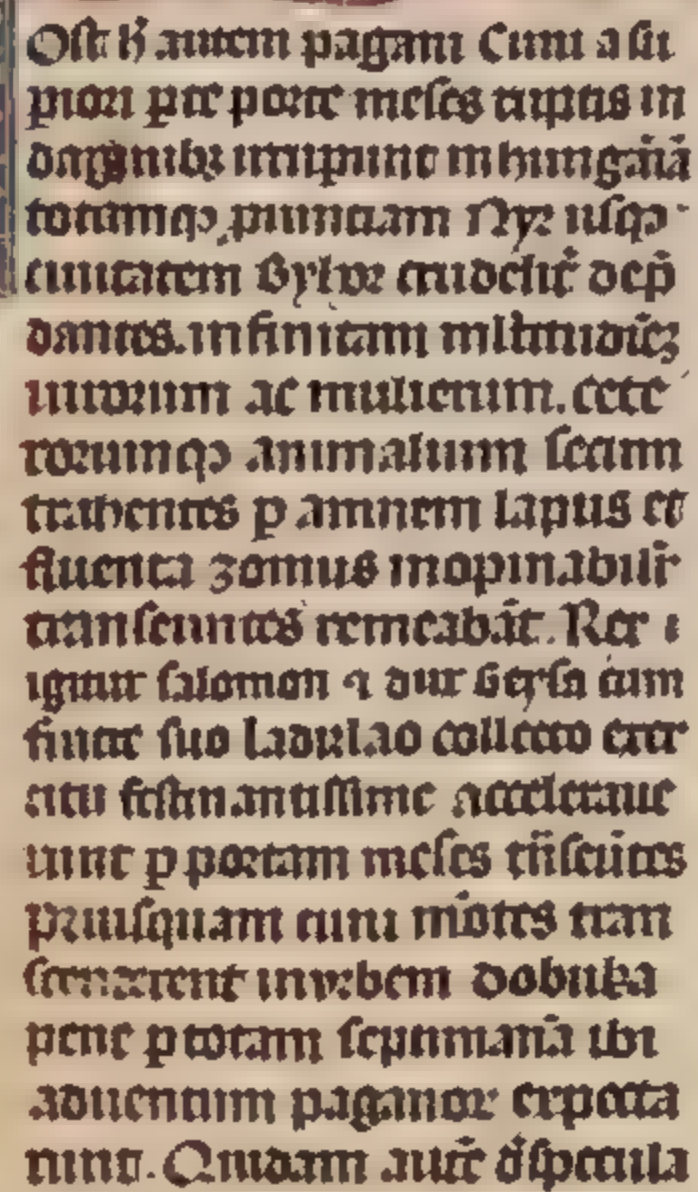 Ost h̅ autem pagani Cuni a su
piori ꝑte porte meſes ruptis in
daginibꝫ irrupunt in hungaꝛiā
totamqꝫ ꝓuinciam Nyr uſqꝫ
ciuitatem Byhor crudelit̄ dep̄
dantes. infinitam mlt̄itudīeꝫ
uirorum ac mulierum. cete
rorumqꝫ animalium secum
trahentes ꝑ amnem lapus et
fluenta zomus inopinabilit̄
transeuntes remeabāt. Rex
igitur salomon ⁊ dux Geysa cum
fratre suo Ladizlao collecto exer
citu festinantissime acceleraue
runt ꝑ portam meſes tn̄seūtes
pꝛiusquam cuni mōtes tran
scenderent in vrbem dobuka
pene ꝑ totam septimanā ibi
aduentum paganoꝝ expecta
runt. Quidam aut̄ d̄ specula